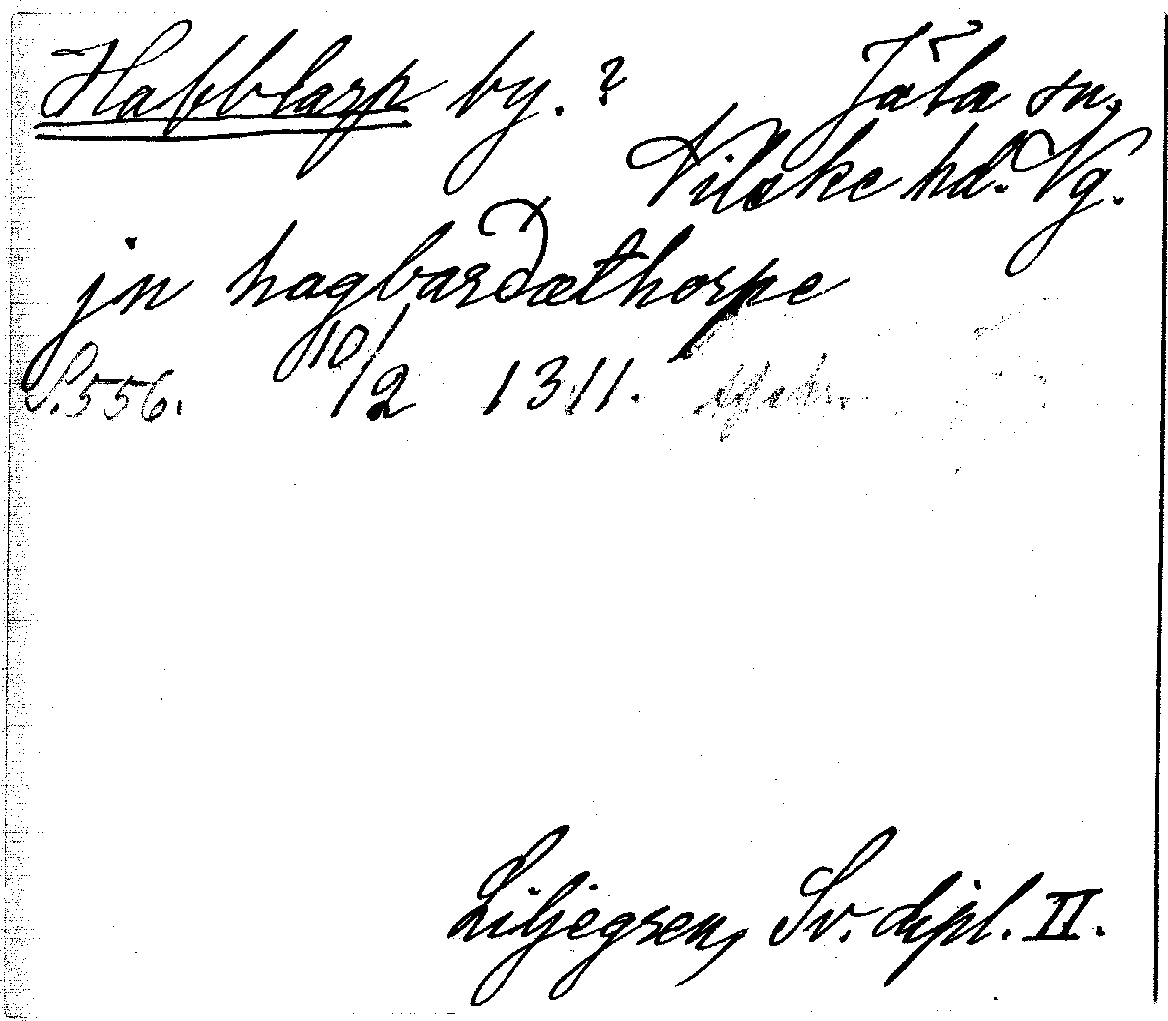 Habblarp by. ? Jäla sn,
Vilske hd. Vg.
jn hagbarðæthorpe
S. 556. 10/2 1311.
Liljegren, Sv. dipl. II.